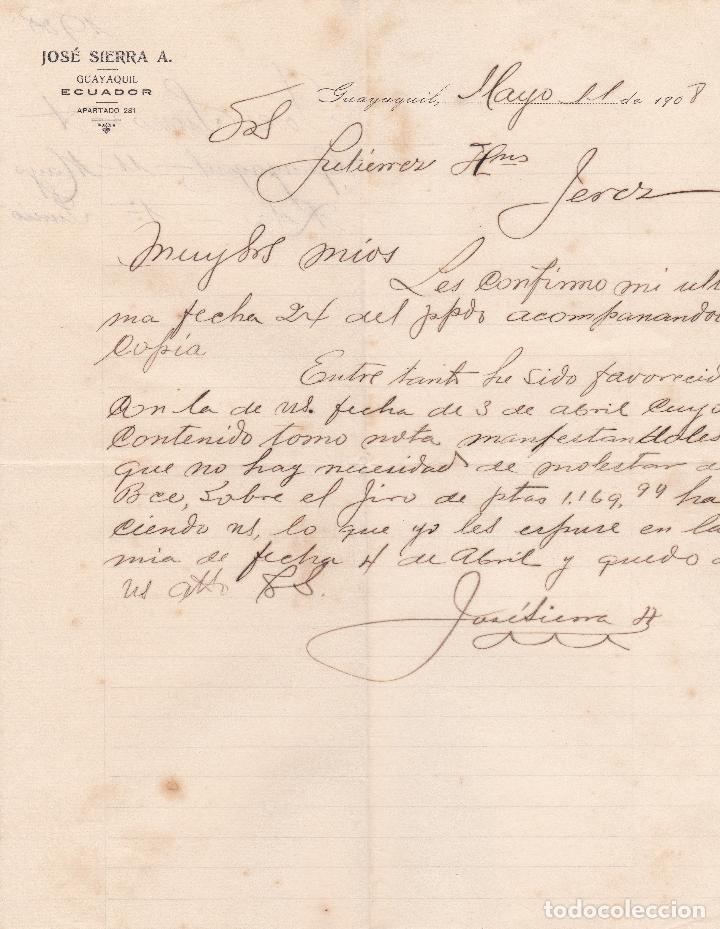 JOSÉ SIERRA A.
GUAYAQUIL
ECUADOR
APARTADO 281
Guayaquil, Mayo 11 de 1908
Gutiérrez Hnos
Jerez
Muy Srs mios
Les Confirmo mi ulti
ma fecha 24 del ppdo acompanando
Copia
Entre tanto he sido favorecid
con la de us. fecha de 3 de abril Cuyo
Contenido tomo nota manfestandoles
que no hay necesidad de molestar a
Bce, Sobre el Jiro de ptas 1.169,94 ha
ciendo us, lo que yo les espuse en la
mia de fecha 4 de Abril y quedo d
us atto SS.
José Sierra A
todocoleccion.net